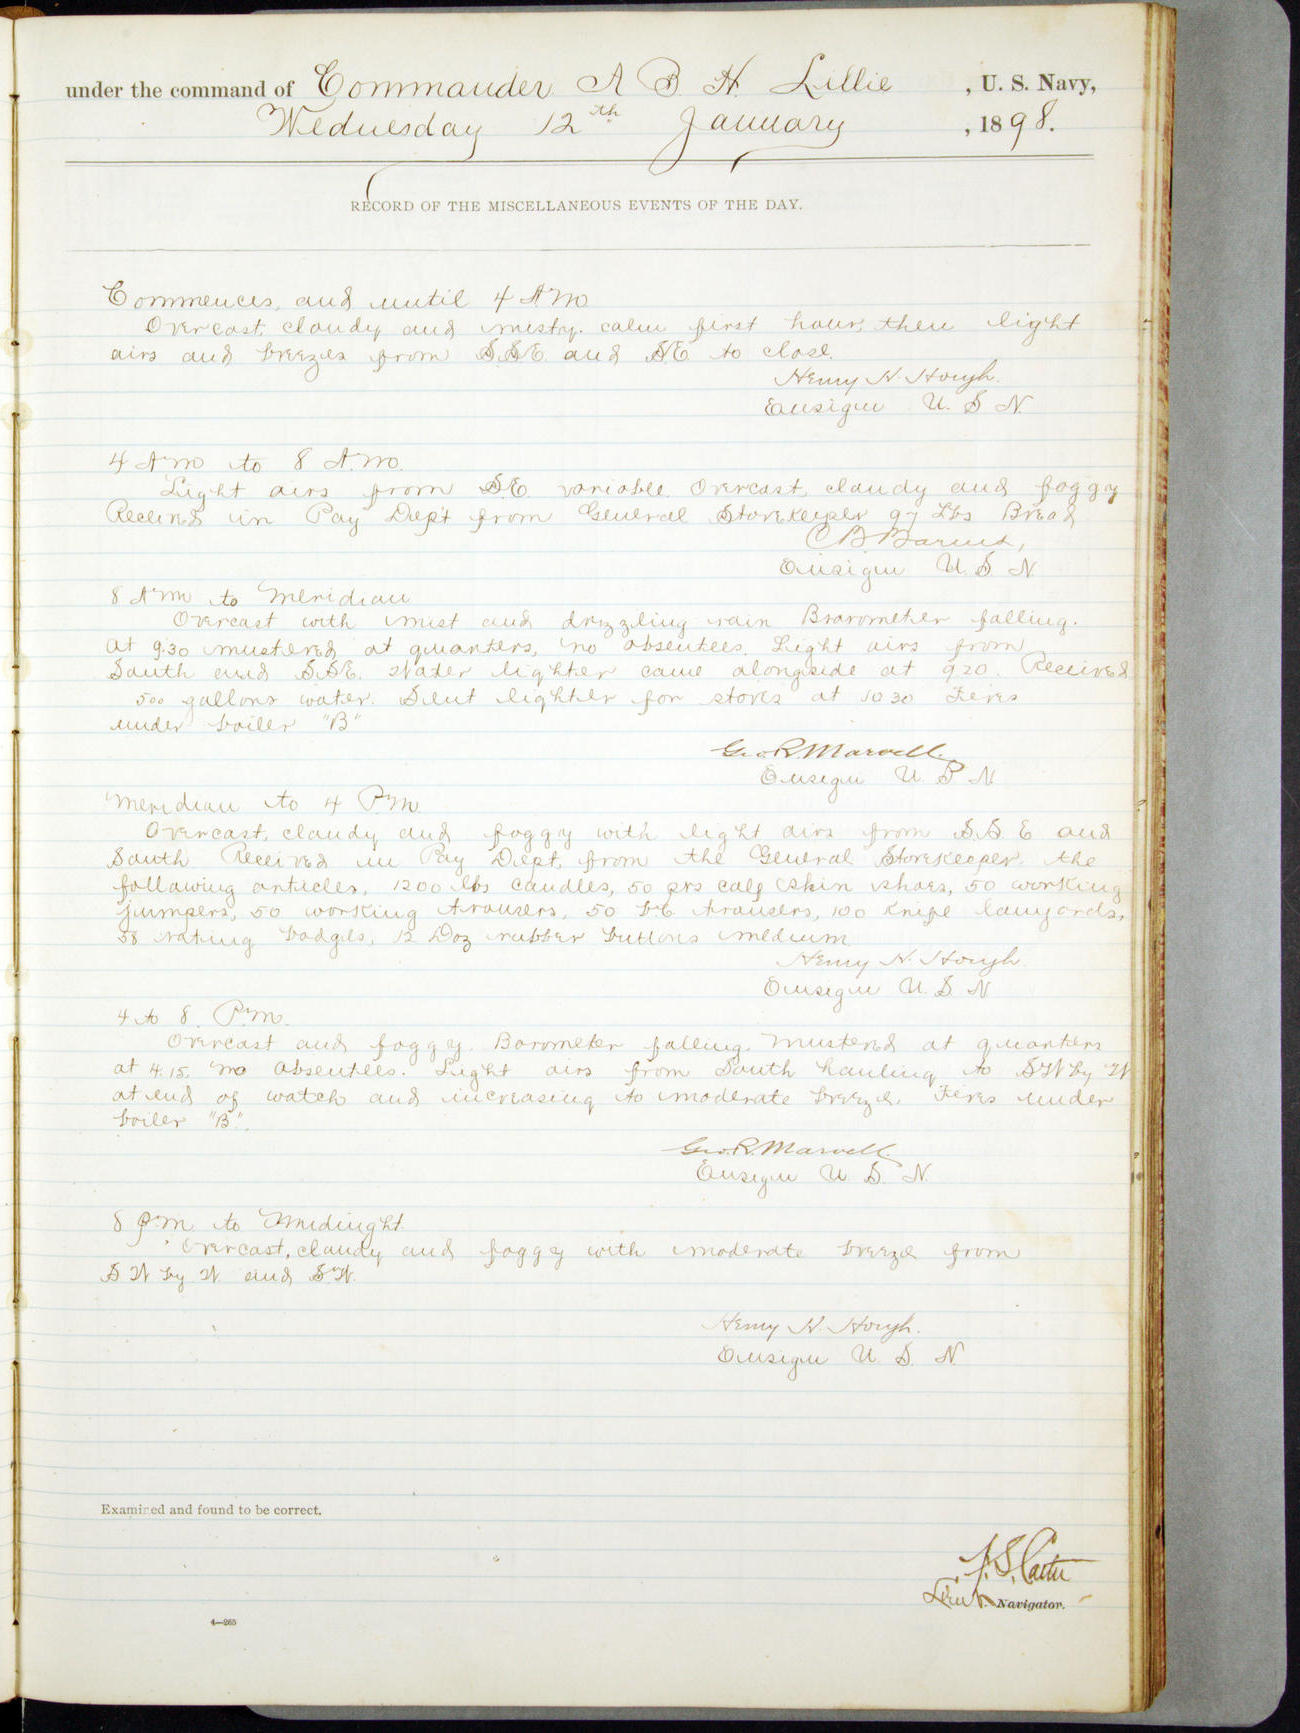 under the command of Commander A B H Lillie, U. S. Navy,
Wednesday 12th January, 1898.
RECORD OF THE MISCELLANEOUS EVENTS OF THE DAY.
Commences, and until 4 A.M.
Overcast, cloudy and misty. calm first hour, then light
airs and breezes from S.S.E. and S.E. to close.
Henry N. Hough.
Ensign U. S. N.
4 A.M. to 8 A.M.
Light airs from S.E. variable. Overcast, cloudy and foggy
Received in Pay Dept from General Storekeeper 97 Lbs Bread
C B Barnes,
Ensign U. S. N.
8 A.M. to Meridian
Overcast with mist and drizzling rain Bsarometer falling.
At 9.30 mustered at quarters, no absentees. Light airs from
South and S.S.E. Water lighter came alongside at 9 20. Received
500 gallons water. Sent lighter for stores at 10 30 Fires
under boiler "B"
Geo. R. Marvell.
Ensign U. S. N
Meridian to 4 P.M.
Overcast, cloudy and foggy with light airs from S.S.E and
South Received in Pay Dept. from the General Storekeeper, the
following articles, 1200 lbs candles, 50 prs calf skin shoes, 50 working
jumpers, 50 working trousers, 50 trousers, 100 knife lanyards,
58 rating badges, 12 Doz rubber buttons medium
Henry N. Hough.
Ensign U. S. N
4 to 8. P.M.
Overcast and foggy. Barometer falling. Mustered at quarters
at 4.15. no absentees. Light airs from South hauling to S.W by W
at end of watch and increasing to moderate breeze. Fires under
boiler "B".
Geo. R. Marvell.
Ensign U. S. N.
8 P.M. to Midnight.
Overcast, cloudy and foggy with moderate breeze from
S W by W. and S.W.
Henry N. Hough.
Ensign U. S. N.
Examined and found to be correct.
Carter
Lieut. Navigator.
4—265